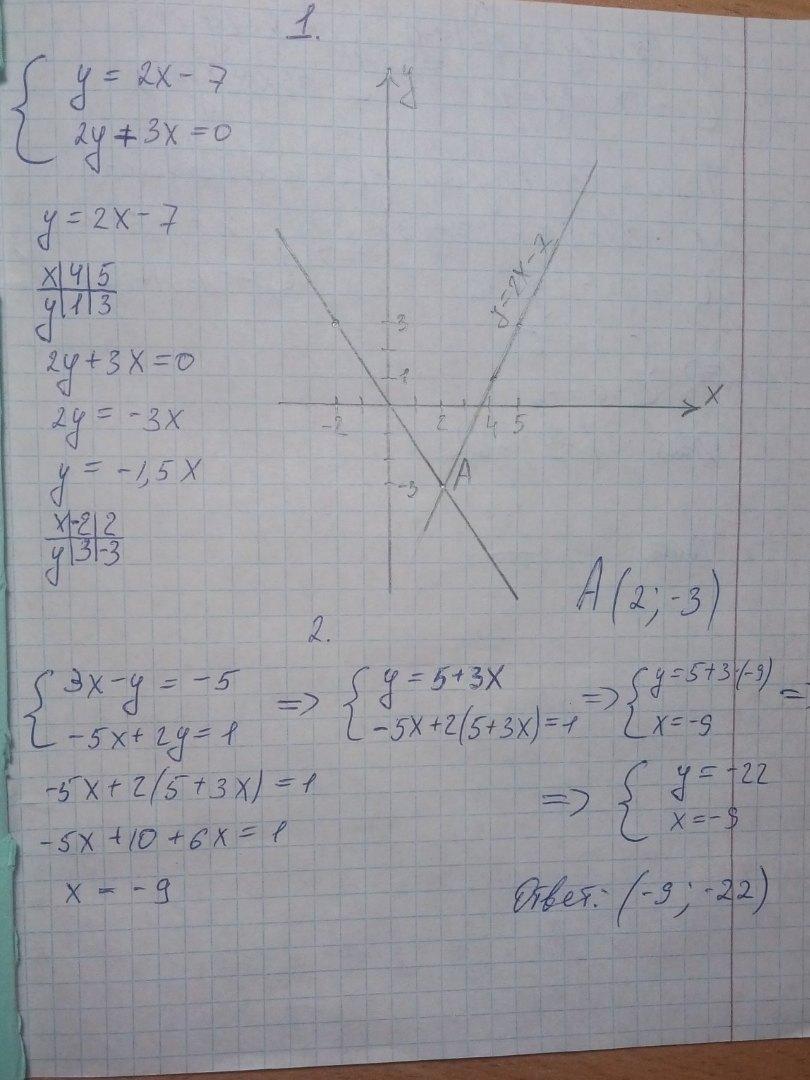 1.
y = 2x - 7
2y + 3x = 0
y = 2x - 7
x | 4 | 5
y | 1 | 3
2y + 3x = 0
2y = -3x
y = -1,5x
x | -2 | 2
y | 3 | -3
y
y = 2x - 7
3
1
-2 2 4 5 x
-3 A
A(2; -3)
2.
3x - y = -5 => y = 5+3x => y = 5+3·(-9) =>
-5x + 2y = 1 -5x+2(5+3x) = 1 x = -9
-5x + 2(5+3x) = 1
-5x + 10 + 6x = 1
x = -9
=> y = -22
x = -9
Ответ: (-9; -22)